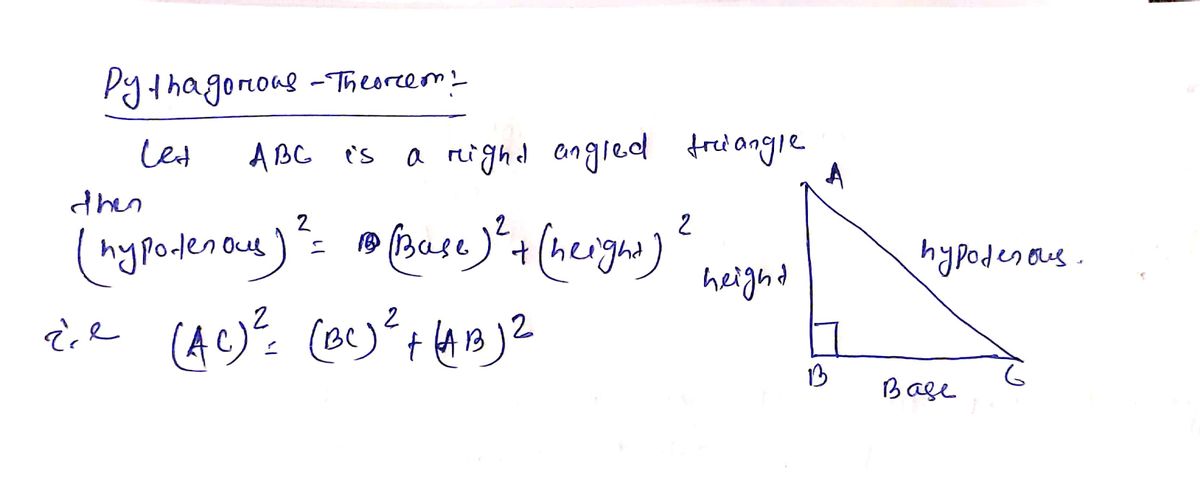 Pythagorous-Theorem:-
Let ABC is a right angled triangle
then
(hypotenous)² = (Base)² + (height)²
i.e (AC)² = (BC)² + (AB)²
A
height
hypotenous.
B
Base
C